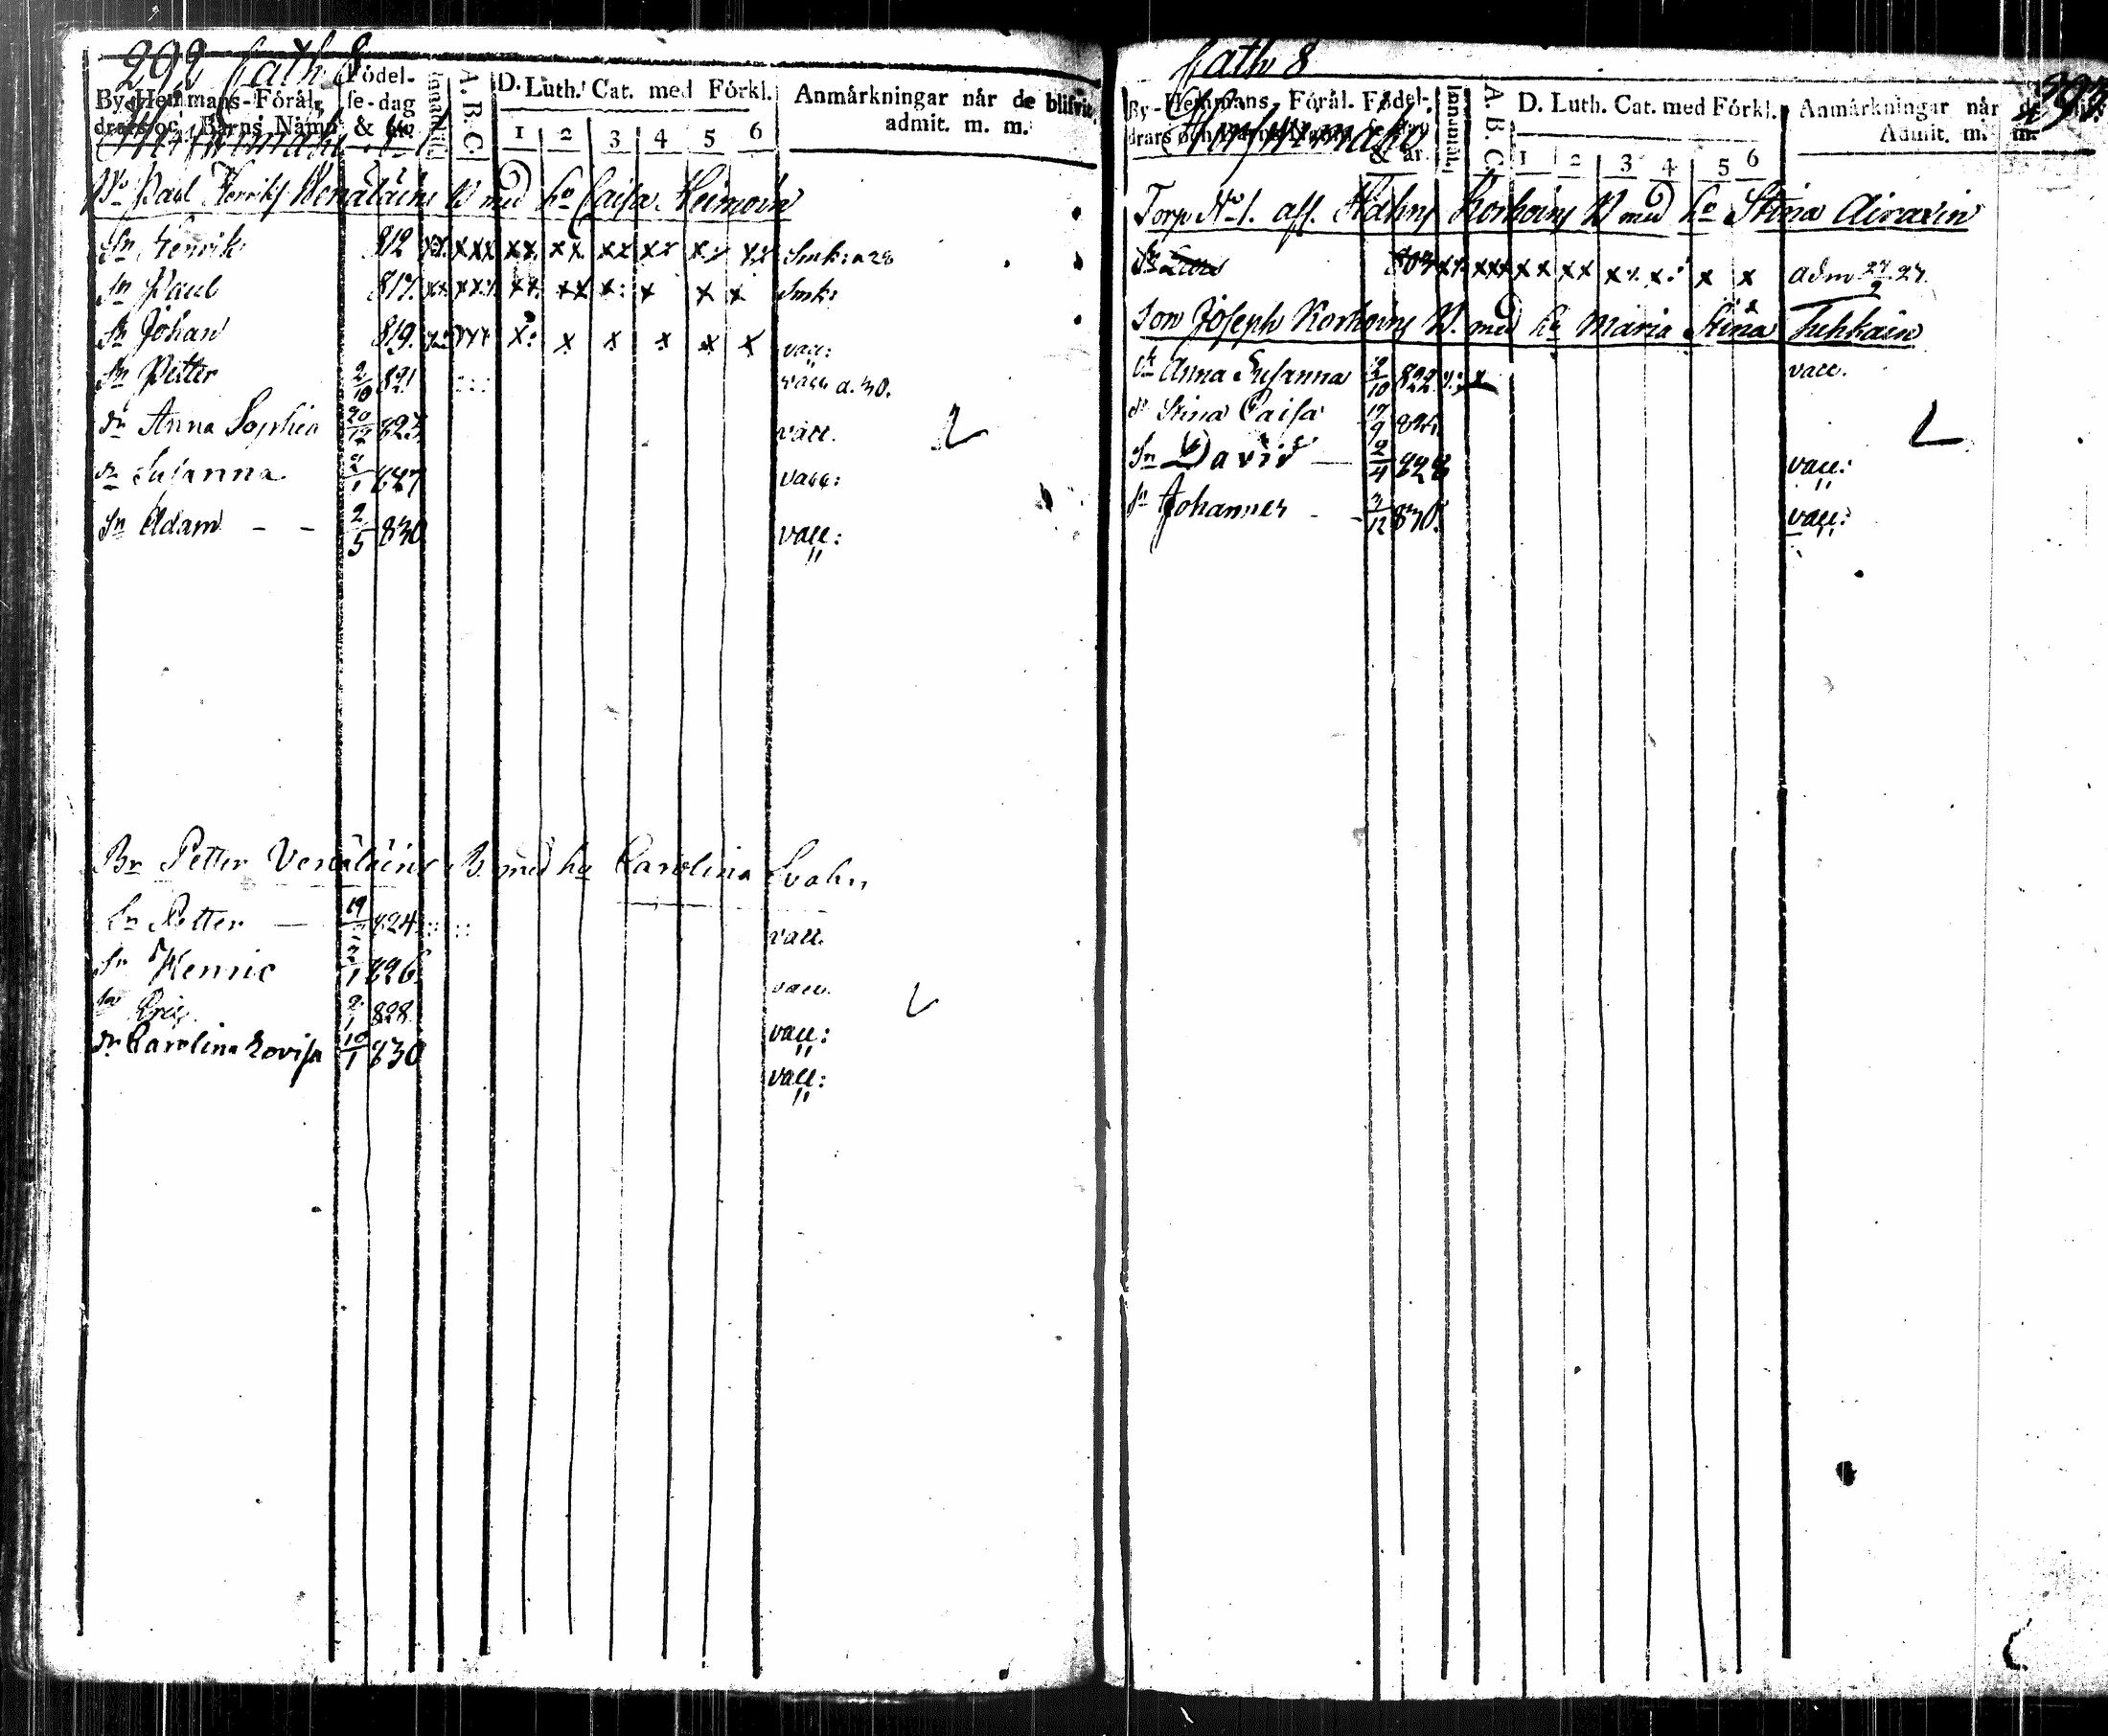 292 Cath 8
By-Hemmans-Förål-
drars och Barns Namn
Födel-
se-dag
& år
Innanläsn.
A. B. C.
D. Luth. Cat. med Förkl.
1 2 3 4 5 6
Anmärkningar når de blifvit
admit. m. m.
Paul Henriks Wenäläins B med ho Caisa Heimovn
Sn Henrik 812 xx. xxx xx. xx. xx xx xx xx Smk: a 28
Sn Paul 817. xx xxx xx. xx x: x x x Smk:
Sn Johan 819. x: x x x x x vacc:
Sn Petter 2/10 821 :: : vacc a. 30.
dr Anna Sophia 20/12 823 vacc.
dr Susanna 1 827 vacc:
Sn Adam – – 2/5 830 vacc:
Br Petter Venäläins B. med ho Carolina Svahn
Sn Petter — 19 824 :: :: vacc.
Sn Henric 1 826. vacc.
Sn 2/1 828 vacc:
dr Carolina Lovisa 10/1 830 vacc:
Cath 8
293.
By-Hemmans-Förål-
drars och Barns Namn
Födel-
se-dag
& år
Innanläsn.
A. B. C.
D. Luth. Cat. med Förkl.
1 2 3 4 5 6
Anmärkningar når de blifvit
Admit. m. m.
Torp No 1. aff. Hahns Korhoins B med ho Stina Airaxin
Sn Lars 803 xx. xxx xx xx xx. x: x x adm 27.
Son Joseph Korhoins B. med ho Maria Stina Tuhkain
dr Anna Susanna 2/10 822 x:; x vacc.
dr Stina Caisa 17/9
Sn David — 2/4 828 vacc:
Sn Johannes - 3/12 830. vacc: